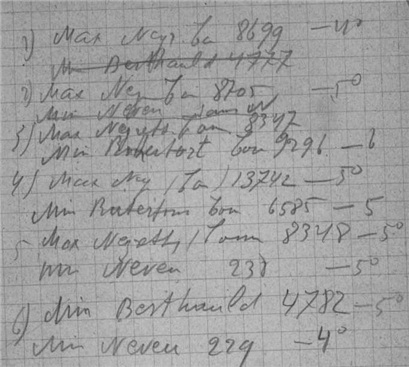 1) Max Negr Ton 8699 —4°
Min Berthauld 4777
2) Max Neg Ton 8705 —5°
Min Neven
3) Max Negrth Tom 8347
Min Robertort Tom 9296 —6
4) Max Ng (Ton) 13742 —5°
Min Robertons Ton 6585 —5
5 Max Negrth / Tonn 8348 —5°
Min Neven 238 —5°
6) Min Berthauld 4782 —5°
Min Neven 229 —4°